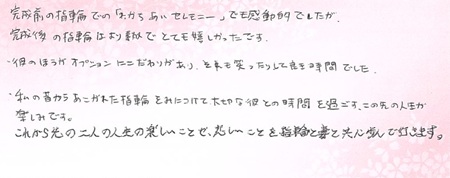 完成前の指輪での「わかちあいセレモニー」でも感動的でしたが、
完成後の指輪はより素敵でとても嬉しかったです。
・彼のほうがオプションにこだわりがあり、を笑ったりして良き時間でした。
・私の昔からあこがれた指輪をみにつけて大切な彼との時間を過ごす、この先の人生が
楽しみです。
これから先の二人の人生の楽しいことぜ、悲しいことを指輪と妻と共に歩んで行きます。